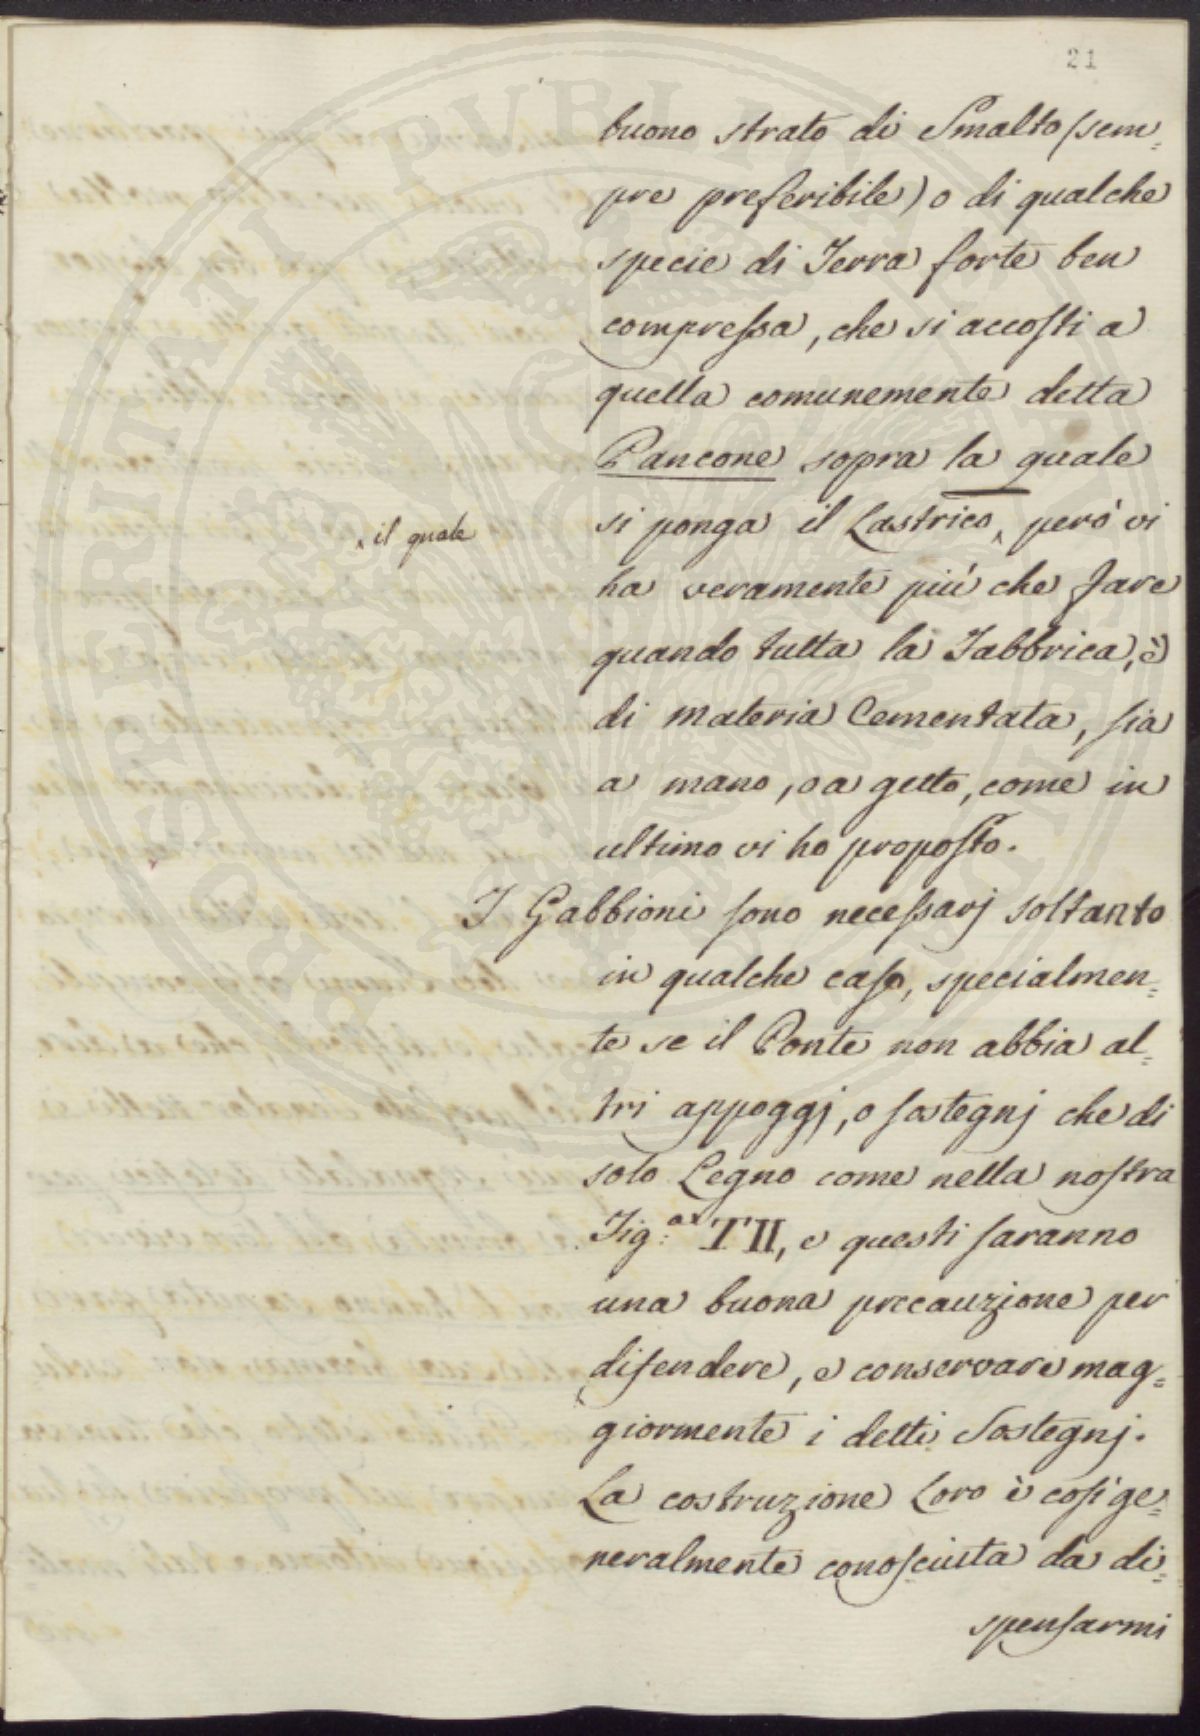 21
buono strato di Smalto (sem=
pre preferibile) o di qualche
specie di Terra forte ben
compressa, che si accosti a
quella comunemente detta
Pancone sopra la quale
si ponga il Lastrico ‸ però vi
‸ il quale
ha veramente più che fare
quando tutta la Fabbrica, è
di materia Cementata, sia
a mano, o a getto, come in
ultimo vi ho proposto.
I Gabbioni sono necessarj soltanto
in qualche caso, specialmen=
te se il Ponte non abbia al=
tri appoggj, o sostegnj che di
solo Legno come nella nostra
Fig:ª TII, e questi saranno
una buona precauzione per
difendere, e conservare mag=
giormente i detti Sostegnj.
La costruzione Loro è così ge=
neralmente conosciuta da di=
spensarmi
PROSPERITATI PUBLICAE